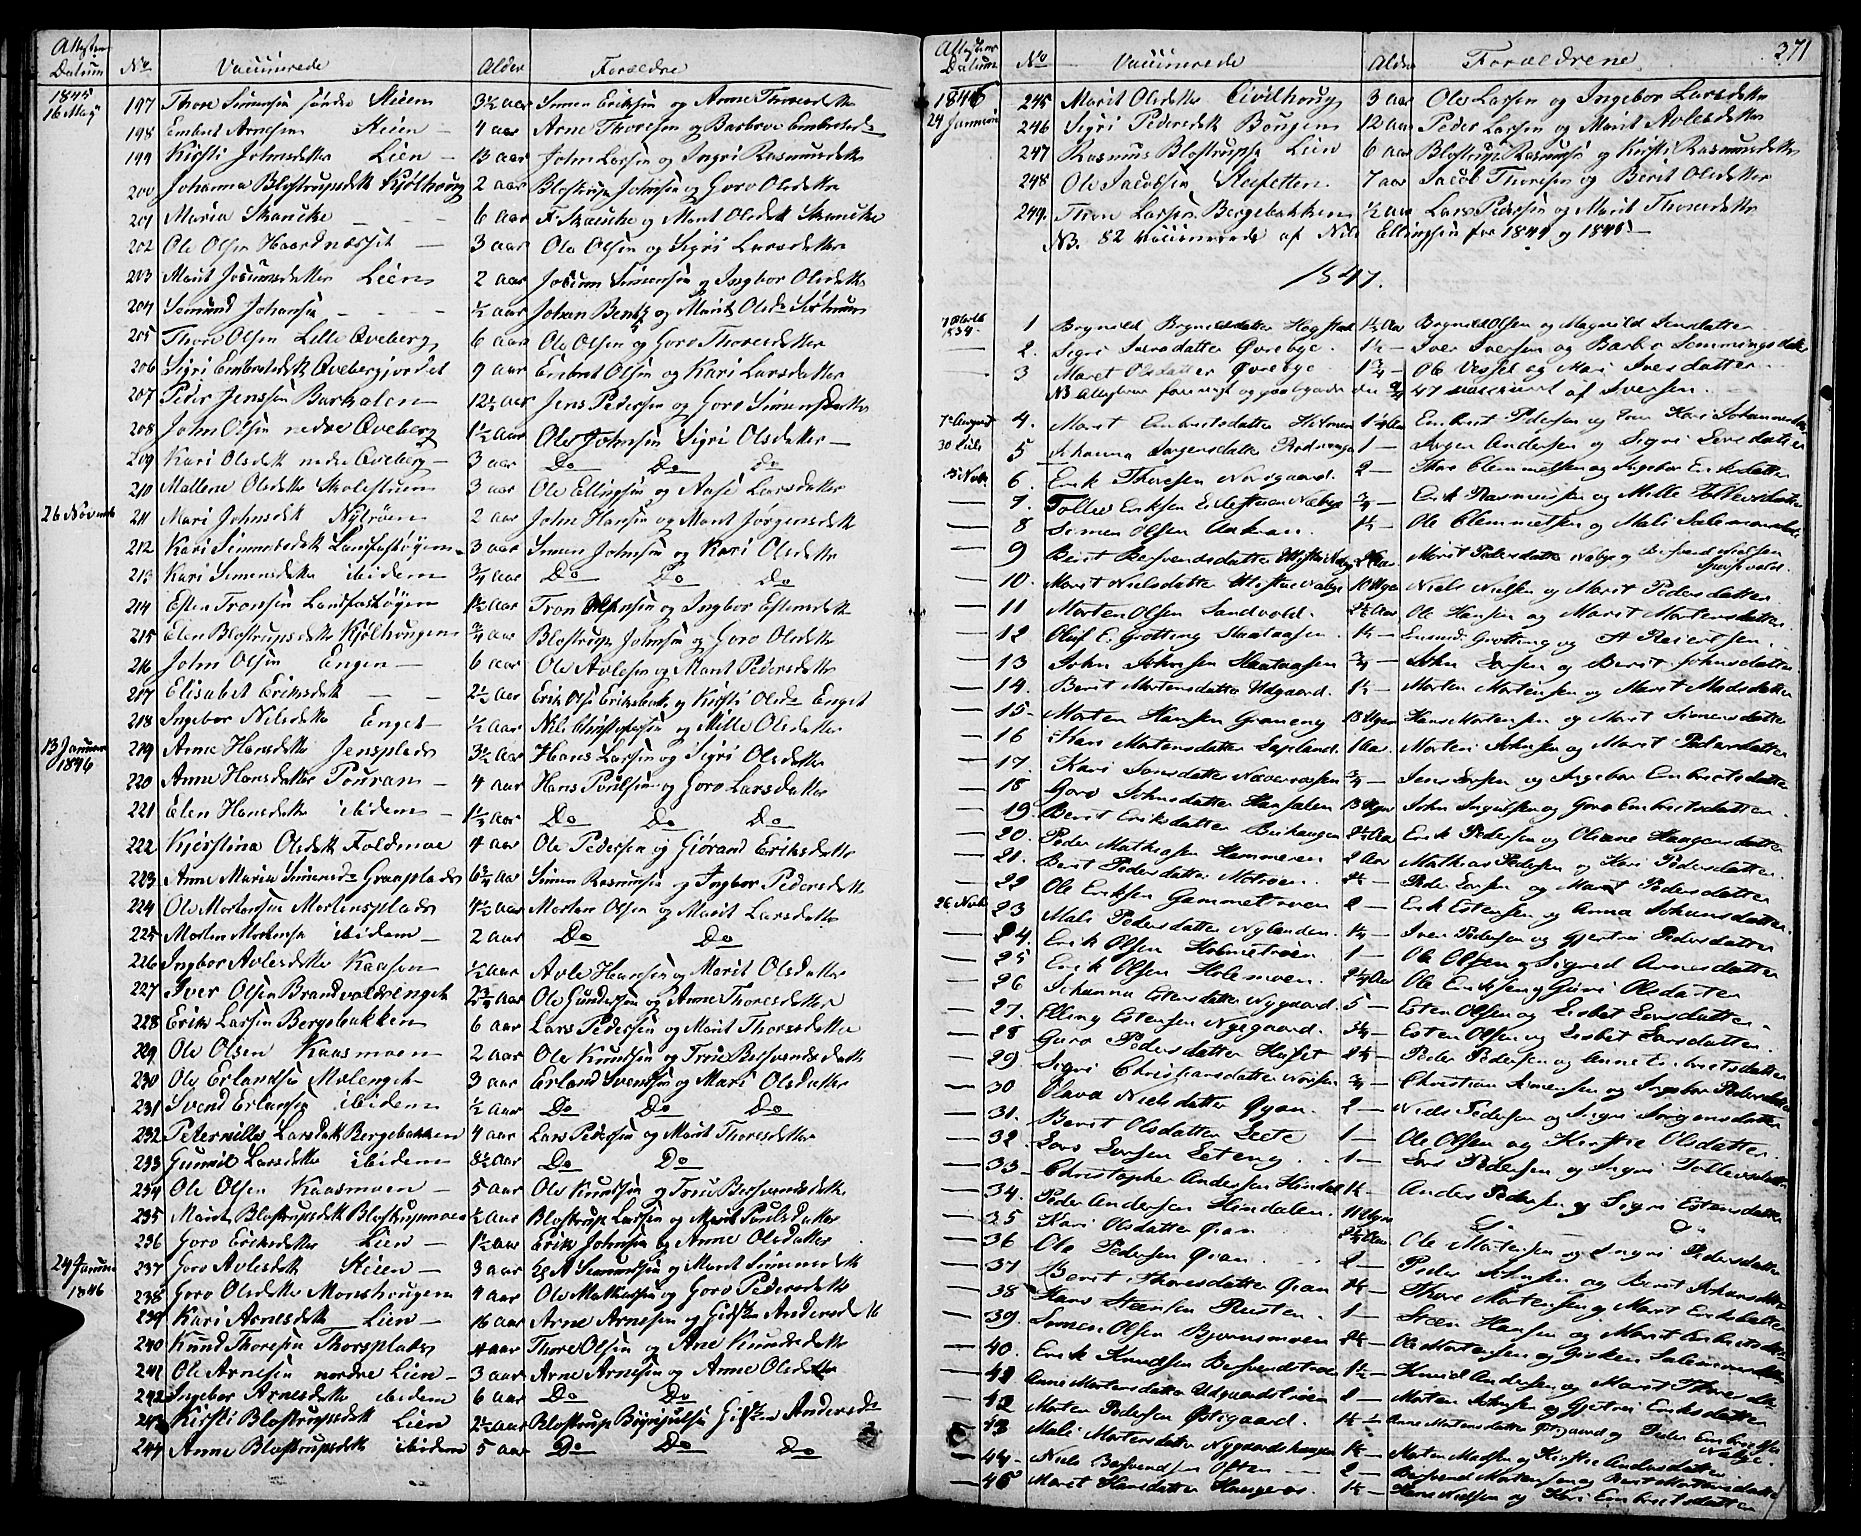 Attestens Datum No Vaccinerede Alder Forældre
1845
16 May 197 Thore Simensen søndre Steien 3½ aar Simen Eriksen og Anne Thoresdatter
198 Embret Arnesen Steien — 4 aar Arne Thoresen og Barbroe Embretsd=
199 Kirsti Johnsdatter Lien — 13 aar John Larsen og Ingri Rasmusdatter
200 Johanna Blostrupsdatt Kjølhoug 2 aar Blostrup Johnsen og Goro Olsdatter
201 Maria Skancke — 6 aar F. Skancke og Marit Olsdatt Skancke
202 Ole Olsen Haardnæsset — 3 aar Ole Olsen og Sigri Larsdatter
203 Marit Josumsdatter Lien 2 aar Josum Simensen og Ingbor Olsdatter
204 Semund Johansen — ½ aar Johan Bentz og Marit Olsd=
205 Thore Olsen Lille Øveberg 6 aar Ole Olsen og Goro Thoresdatter
206 Sigri Embretsdatt Øvebergjordet 9 aar Embret Olsen og Kari Larsdatter
207 Peder Jenssen Barkalen — 12½ aar Jens Pedersen og Goro Simensdatter
208 John Olsen nedre Øveberg 1½ aar Ole Johnsen Sigri Olsdatter —
209 Kari Olsdatt nedre Øveberg — 3 aar Do Do Do
210 Mallene Olsdatter 3 aar Ole Ellingsen og Aase Larsdatter
26 Novemb 211 Mari Johnsdatt Nytrøen 2 aar John Hansen og Marit Jørgensdatter
212 Kari Simensdatt Langaskøyen 3 aar Simen Johnsen og Kari Olsdatter
213 Kari Simensdatter ibidem ¾ aar Do Do Do
214 Esten Tronsen 1½ aar Tron og Ingbor Estensdatter
215 Elen Blostrupsdatter Kjølhougen ¾ aar Blostrup Johnsen og Goro Olsdatter
216 John Olsen Engen — 6 aar Ole Avlesen og Marit Pedersdatter
217 Elisabet Eriksdatt — 2½ aar Erik Olsen og Kirsti Olsd= Enget
218 Ingebor Nilsdatter Enget — ½ aar Nils Christophersen og Mille Olsdatter
13 Januar 1846 219 Arne Hansdatter Jensplads 3½ aar Hans Larssen og Sigri Olsdatter
220 Anne Hansdatter 4 aar Hans Poulsen og Goro Larsdatter
221 Elen Hansdatt ibidem — 1⅓ aar Do Do Do
222 Kjerstina Olsdatt Foldmoe 4 aar Ole Pedersen og Giørand Eriksdatter
223 Anne Maria Simensd= Granplads 6¾ aar Simen Rasmusen og Ingbor Pedersdatt
224 Ole Mortensen Mortensplads 4½ aar Morten Olsen og Marit Larsdatter
225 Morten Mortensen ibidem — 2 aar Do Do
226 Ingbor Avlesdatter Kaasen ½ aar Avle Hansen og Marit Olsdatter
227 Iver Olsen Brandvoldrenget 2¾ aar Ole Gundersen og Anne Thoresdatter
228 Erik Larsen Bergebakken 6 aar Lars Pedersen og Marit Thoresdatter
229 Ole Olsen Kaasmoen — 2 aar Ole Knudsen og Trøie Bersvendsdatt
230 Ole Erlandsen Molenget — 3 aar Erland Svendsen og Mari Olsdatter
231 Svend Erlansen ibidem ½ aar Do Do Do
232 Peternille Larsdatt Bergebakken 4 aar Lars Pedersen og Marit Thoresdatter
233 Gunnil Larsdatter ibidem 8½ aar Do Do
234 Ole Olsen Kaasmoen — 5 aar Ole Knudsen og Trøie Bersvendsdatter
235 Marit Blostrupsdatt Blostrupmoen ½ aar Blostrup Larsen og Marit Poulsdatter
236 Goro Eriksdatter Lien — 1½ aar Erik Johnsen og Anne Olsdatter
24 Januar 1846 237 Goro Avlesdatt Steien — 3 aar A Semundsen og Marit Simensdatter
238 Goro Olsdatter Monshougen 4 aar Ole Mathiassen og Goro Pedersdatter
239 Kari Arnesdatter Lien — 16 aar Arne Arnesen og Andersd
240 Knud Thoresen Thorsplads 4 aar Thore Olsen og Ane Knudsdatter
241 Ole Arnesen nordre Lien — 3 aar Arne Arnesen og Anne Olsdatter
242 Ingebor Arnesdatter ibidem 6 aar Do Do
243 Kirsti Blostrupsdatt Lien 2½ aar Blostrup Andersd=
244 Anne Blostrupsdatt ibidem 5 aar Do Do Do
Attestens Datum No Vaccinerede Alder Forældrene 371
1846
24 Januar 245 Marit Olsdatter Civilhoug 3 aar Ole Larsen og Ingebor Larsdatter
246 Sigri Pedersdatt Bougen 12 aar Peder Larsen og Marit Avlesdatter
247 Rasmus Blostrups Lien 6 aar Blostrup Rasmusen og Kirsti Rasmusdatter
248 Ole Jacobsen 7 aar Jacob Thoresen og Berit Olsdatter
249. Thore Larsen Bergebakken ½ aar Lars Pedersen og Marit Thoresdatter
NB. 82 Vaccinerede af Nils Ellingsen for 1844 og 1845 —
1847.
1 Bryneld Bryneldsdatter Hogstad 1½ Aar Bryneld Olsen og Magnild Jensdatter
2. Sigri Iversdatter Øvrebye. 1½ — Iver Iversen og Barbro Semmingsdatter
3 Maret Olsdatter Øvrebye 1¾ — Ole og Mari Iversdatter
47 vaccineret af Iversen.
7de August 4. Maret Embretsdatter 1¼ Aar Embret Pedersen og Kari Johannesdatter
30 Juli 5 Johanna Jørgensdatter 1 — Jørgen Andersen og Sigri Jonsdatter
6. Erik Thoresen Norsgaard. 2 — Thore Clemmetsen og Ingebor Eriksdatter
7. Tollev Eriksen ¾ — Erik Rasmussen og Mille Tollevsdatter
8 Simen Olsen Aakran. 1½ — Ole Clemmetsen og Mali Salamonsdatter
9 Berit Bersvendsdatter Marit Pedersdatter og Bersvend Nielsen
10. Marit Nielsdatter Niels Nielsen og Marit Pedersdatter
11 Morten Olsen Sandvold. 2½ Aar Ole Hansen og Marit Mortensdatter
12 Oluf E. Grøtting 1½ — Grøtting og A Reiersen.
13 John Johnsen ¾ — John Jonsen og Berit Johnsdatter
14. Berit Mortensdatter Udgaard. 1½ — Morten Mortensen og Maret Madsdatter
15. Morten Hansen 13 Uger Hans Mortensen og Marit Simensdatter
16 Kari Mortensdatter 1 Aar. Morten Johnsen og Marit Pedersdatter
17. Kari Jonsdatter Næveraasen ¾ — Jens Jonsen og Ingebor Embretsdatter
18 Goro Johnsdatter Hansalen 13 Uger John Ingulsen og Goro Embretsdatter
19. Berit Eriksdatter 2½ Aar Erik Pedersen og Oliane Haagensdatter
20. Peder Mathiasen Hammeren 2 Aar Mathias Pedersen og Kari Pedersdatter
21. Berit Pedersdatter Motrøen. 2½ — Peder Jonsen og Maret Pedersdatter
22 Ole Eriksen Gammeltrøen 2 — Erik Estensen og Anna Johansdatter
23 Mali Pedersdatter Nylanden. 1½ — Iver Pedersen og Gjertru Pedersdatter
24. Erik Olsen Holmetrøen 1 — Ole Olsen og Sigred Arnesdatter
25 Erik Olsen Holemoen 2½ Aar Ole Eriksen og Guri Olsdatter
26 Johanna Estensdatter Nygaard. 5 — Esten Olsen og Lisbet Jonsdatter
27. Elling Estensen Nygaard. 2½ — Esten Olsen og Lisbet Jonsdatter.
28 Guro Pedersdatter Huset 2½ — Peder Pedersen og Anne Embretsdatter
29 Sigri Christiansdatter ¾ — Christian Simensen og Ingebor Pedersdatter
30 Olava Nielsdatter Øyan. 2 — Niels Pedersen og Sigri Jørgensdatter
31. Berit Olsdatter 1 — Ole Olsen og Kirstie Olsdatter
32 Jons Jonsen 1 — Jens Pedersen og Ingri Tollevsdatter
33 — Christopher Andersen Hindal 1½ — Anders Pedersen og Sigri Estensdatter
34. Peder Andersen Hindalen. 11 Uger Do
35 Kari Olsdatter Øian. 2½ Aar Ole Mortensen og Ingri Pedersdatter
36 Ole Pedersen Øian. 2 — Peder Johnsen og Berit Johansdatter
37 Berit Thoresdatter Øian 1½ — Thore Mortensen og Maret Eriksdatter
38 Hans Steensen Rusten. 1 — Steen Hansen og Marit Embretsdatter
39. Simen Olsen Bjørnsmoen 2½ — Ole Mortensen og Salomonsdatter
40. Erik Knudsen Bersvendstrøen 1½ — Knud Andersen og Maret Thoresdatter
41 Anne Mortensdatter Udgaardstrøen 2 — Morten Johnsen og Gjertru Eriksdatter
42 Morten Pedersen Østigaard. 1½ — Anne Mortensdatter Østigaard og Peder Embretsen
43 Mali Mortensdatter Nygaardshaugen 1½ — Morten Madsen og Kirstie Andersdatter
44 Niels Bersvendsen — 2 — Bersvend Mortensen og Berit Mortensdatter
45 Maret Hansdatter 1½ — Hans Nielsen og Kari Embretsdatter